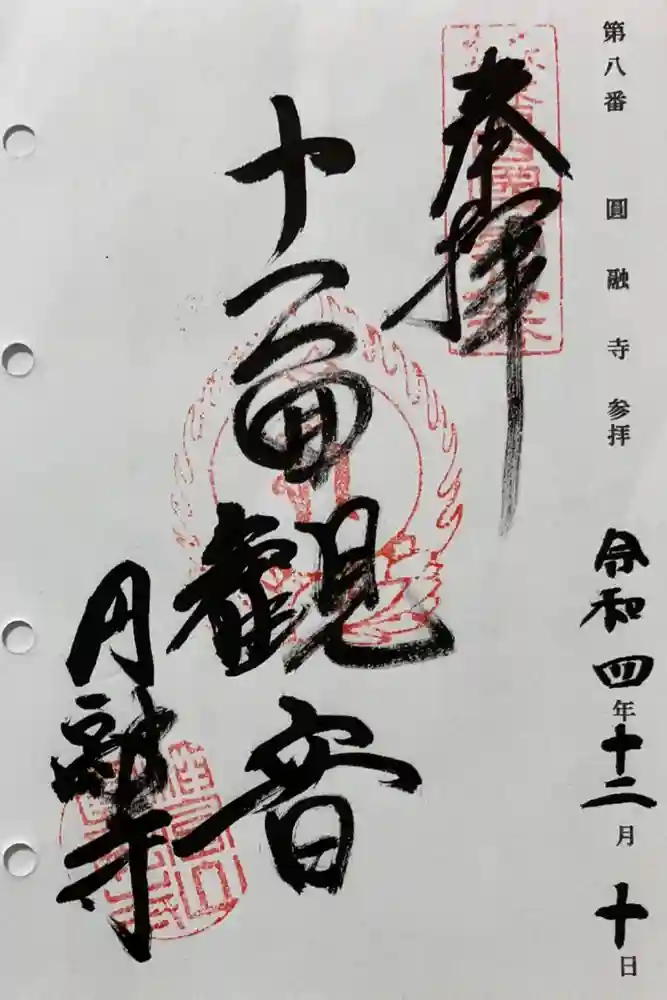 第八番 圓融寺 参拝
令和四年十二月十日
奉拝
十一面観音
円融寺